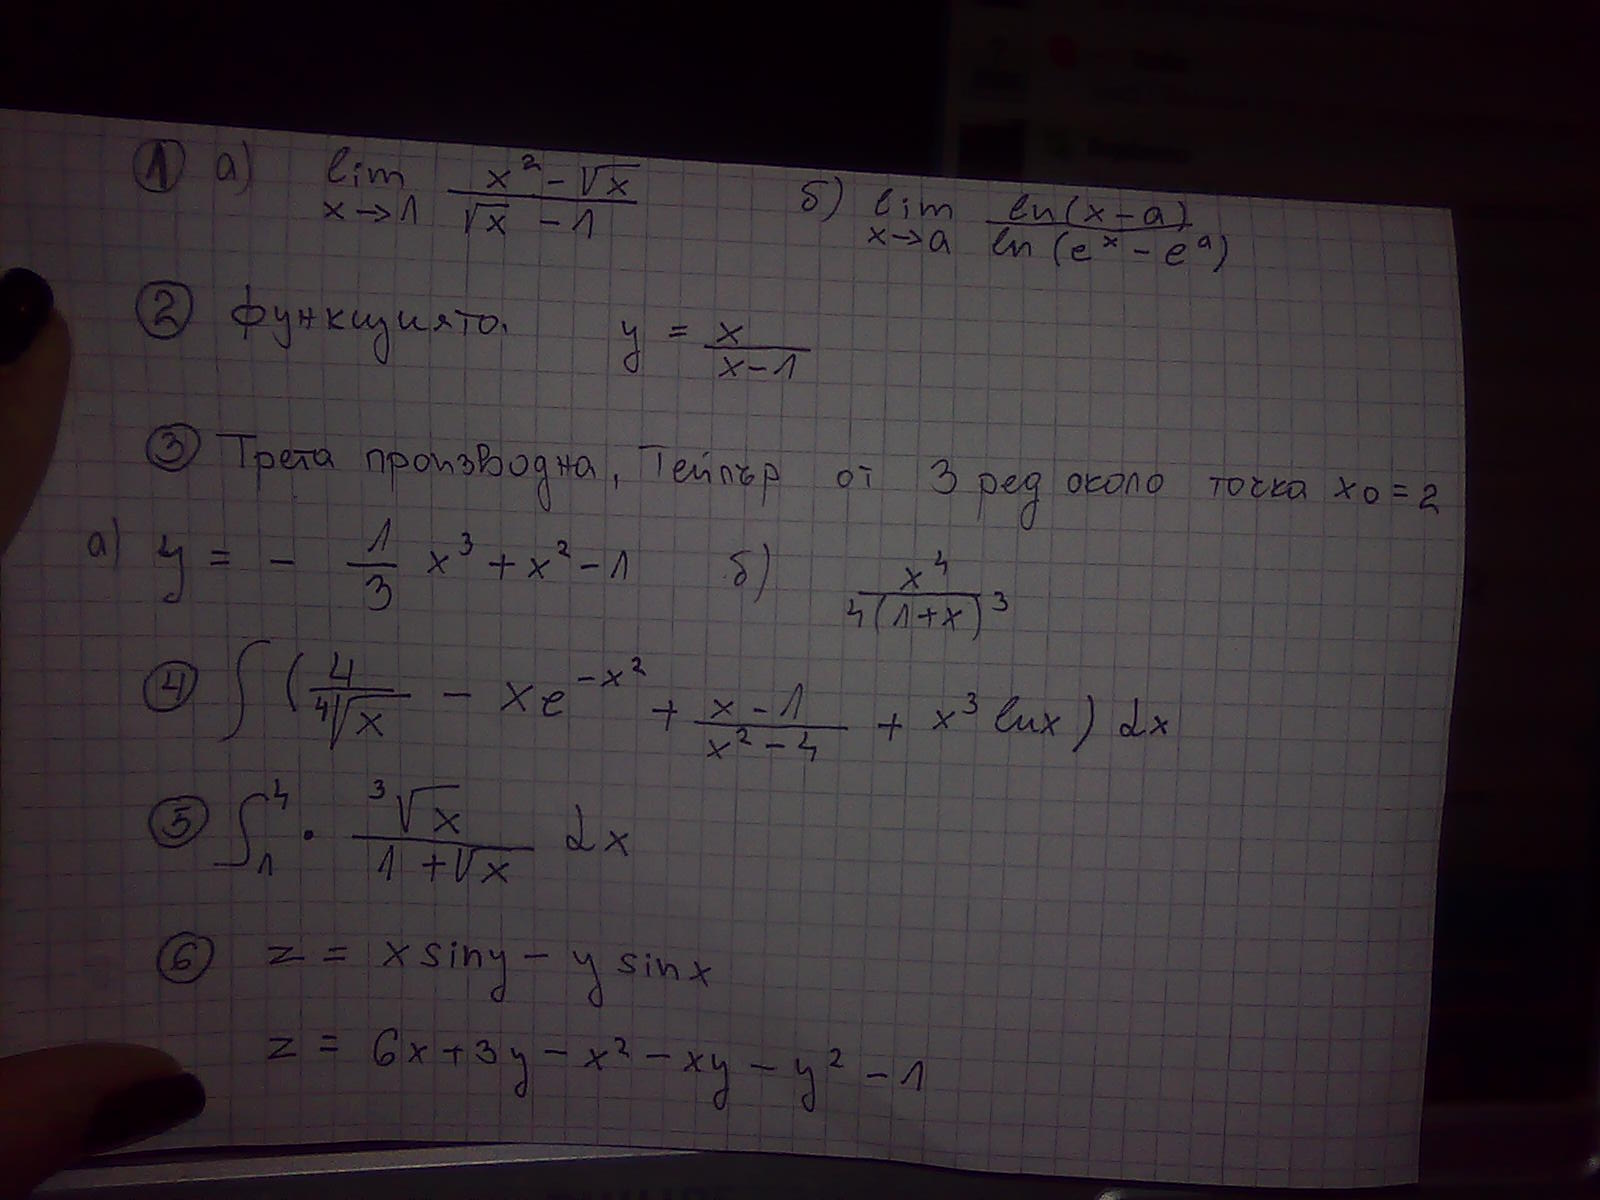 ① а) lim x→1 (x² - √x)/(√x - 1) б) lim x→a ln(x-a)/ln(eˣ - eᵃ)
② функцията. y = x/(x-1)
③ Трета производна, Тейлър от 3 ред около точка x₀ = 2
а) y = - 1/3 x³ + x² - 1 б) x⁴/4(1+x)³
④ ∫ (4/⁴√x - xe^(-x²) + (x-1)/(x²-4) + x³ lnx) dx
⑤ ∫₁⁴ · ³√x/(1+√x) dx
⑥ z = x siny - y sinx
z = 6x + 3y - x² - xy - y² - 1